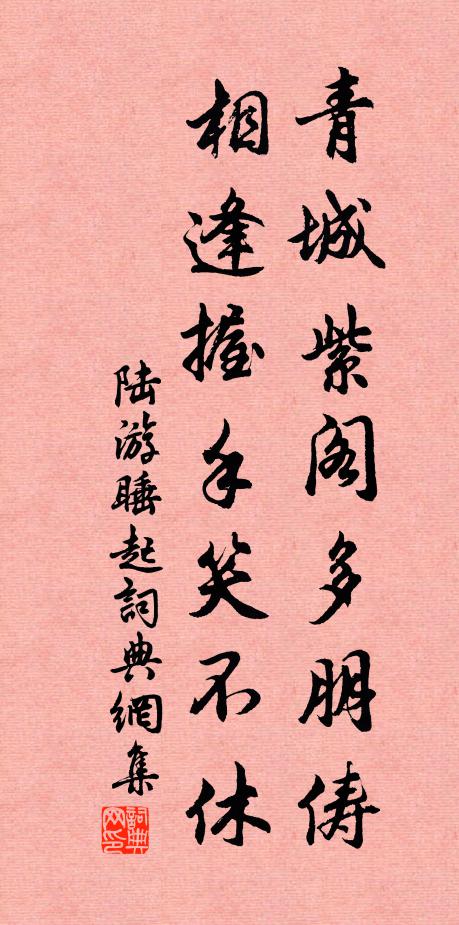 青城紫阁多朋俦
相逢握手笑不休
陆游睡起詞典網集
詞典网印